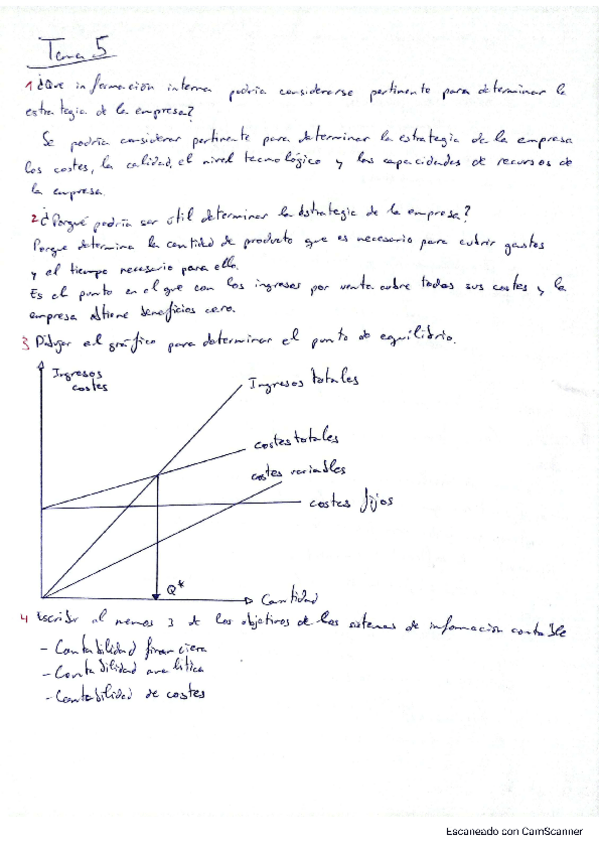 Tema 5
1 ¿Que información interna podria considerarse pertinente para determinar la
estrategia de la empresa?
Se podria considerar pertinente para determinar la estrategia de la empresa
los costes, la calidad, el nivel tecnológico y las capacidades de recursos de
la empresa.
2 ¿Porqué podria ser útil determinar la estrategia de la empresa?
Porque determina la cantidad de producto que es necesario para cubrir gastos
y el tiempo necesario para ello.
Es el punto en el que con los ingresos por venta cubre todos sus costes y la
empresa obtiene beneficios cero.
3 Dibujar el gráfico para determinar el punto de equilibrio.
Ingresos
costes
Ingresos totales
costes totales
costes variables
costes fijos
Q*
Cantidad
4 escribir al menos 3 de los objetivos de los sistemas de información contable
- Contabilidad financiera
- Contabilidad analitica
- Contabilidad de costes
Escaneado con CamScanner